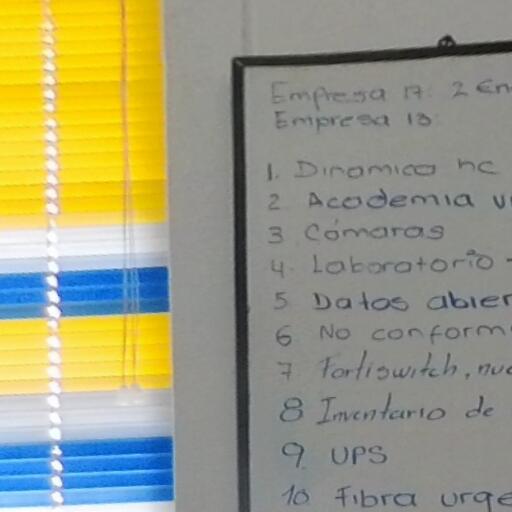 Empresa 17: 2 En
Empresa 13:
1. Dinamico nc
2 Academia v
3 Cámaras
4. Laboratorio
5 Datos abier
6 No conform
7 Fortiswitch, nu
8 Inventario de
9. UPS
10 Fibra urge